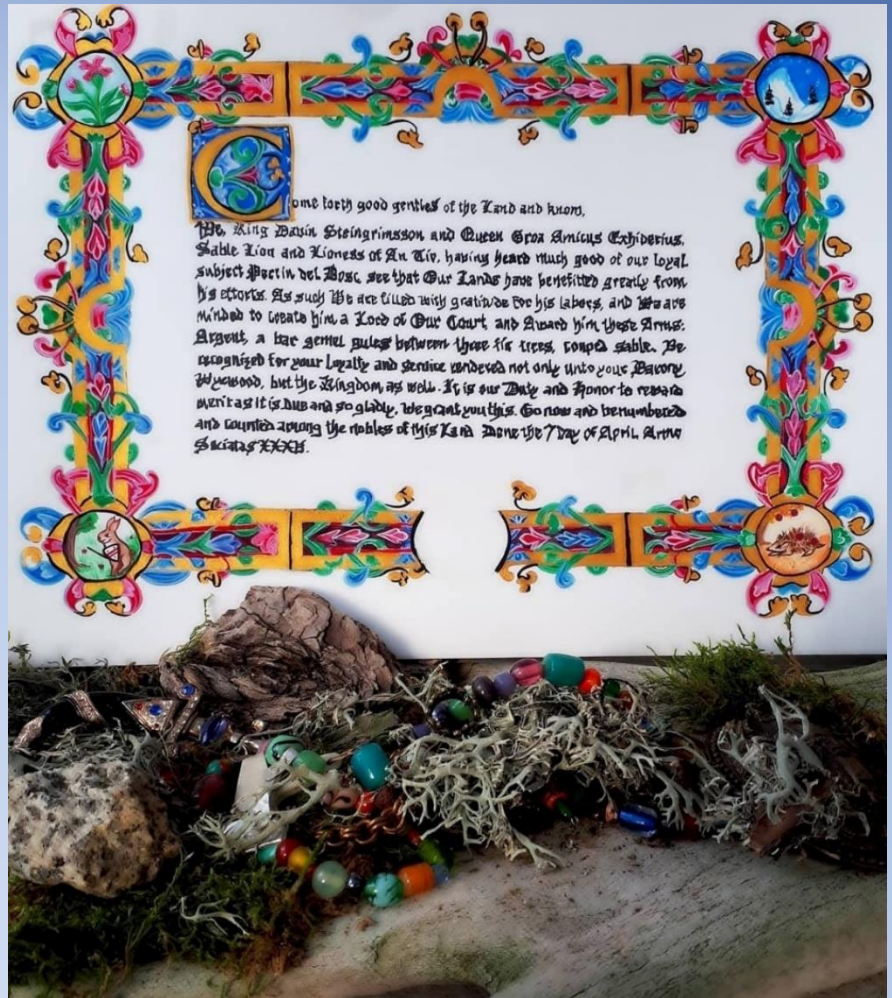 Come forth good gentles of the Land and know,
We, King Davin Steingrimsson and Queen Groa Amicus Exhiberius,
Sable Lion and Lioness of An Tir, having heard much good of our Loyal
subject Perrin del Bosc, see that Our Lands have benefitted greatly from
his efforts. As such We are filled with gratitude for his labors, and We are
minded to create him a Lord of Our Court, and Award him these Arms:
Argent, a bar gemel gules between three fir trees, couped sable. Be
recognized for your Loyalty and service rendered not only unto your Barony
Wyewood, but the Kingdom as well. It is our Duty and Honor to reward
merit as it is Due and so gladly, We grant you this. Go now and be numbered
and counted among the nobles of this Land Done the 7 Day of April, Anno
Socia​tas